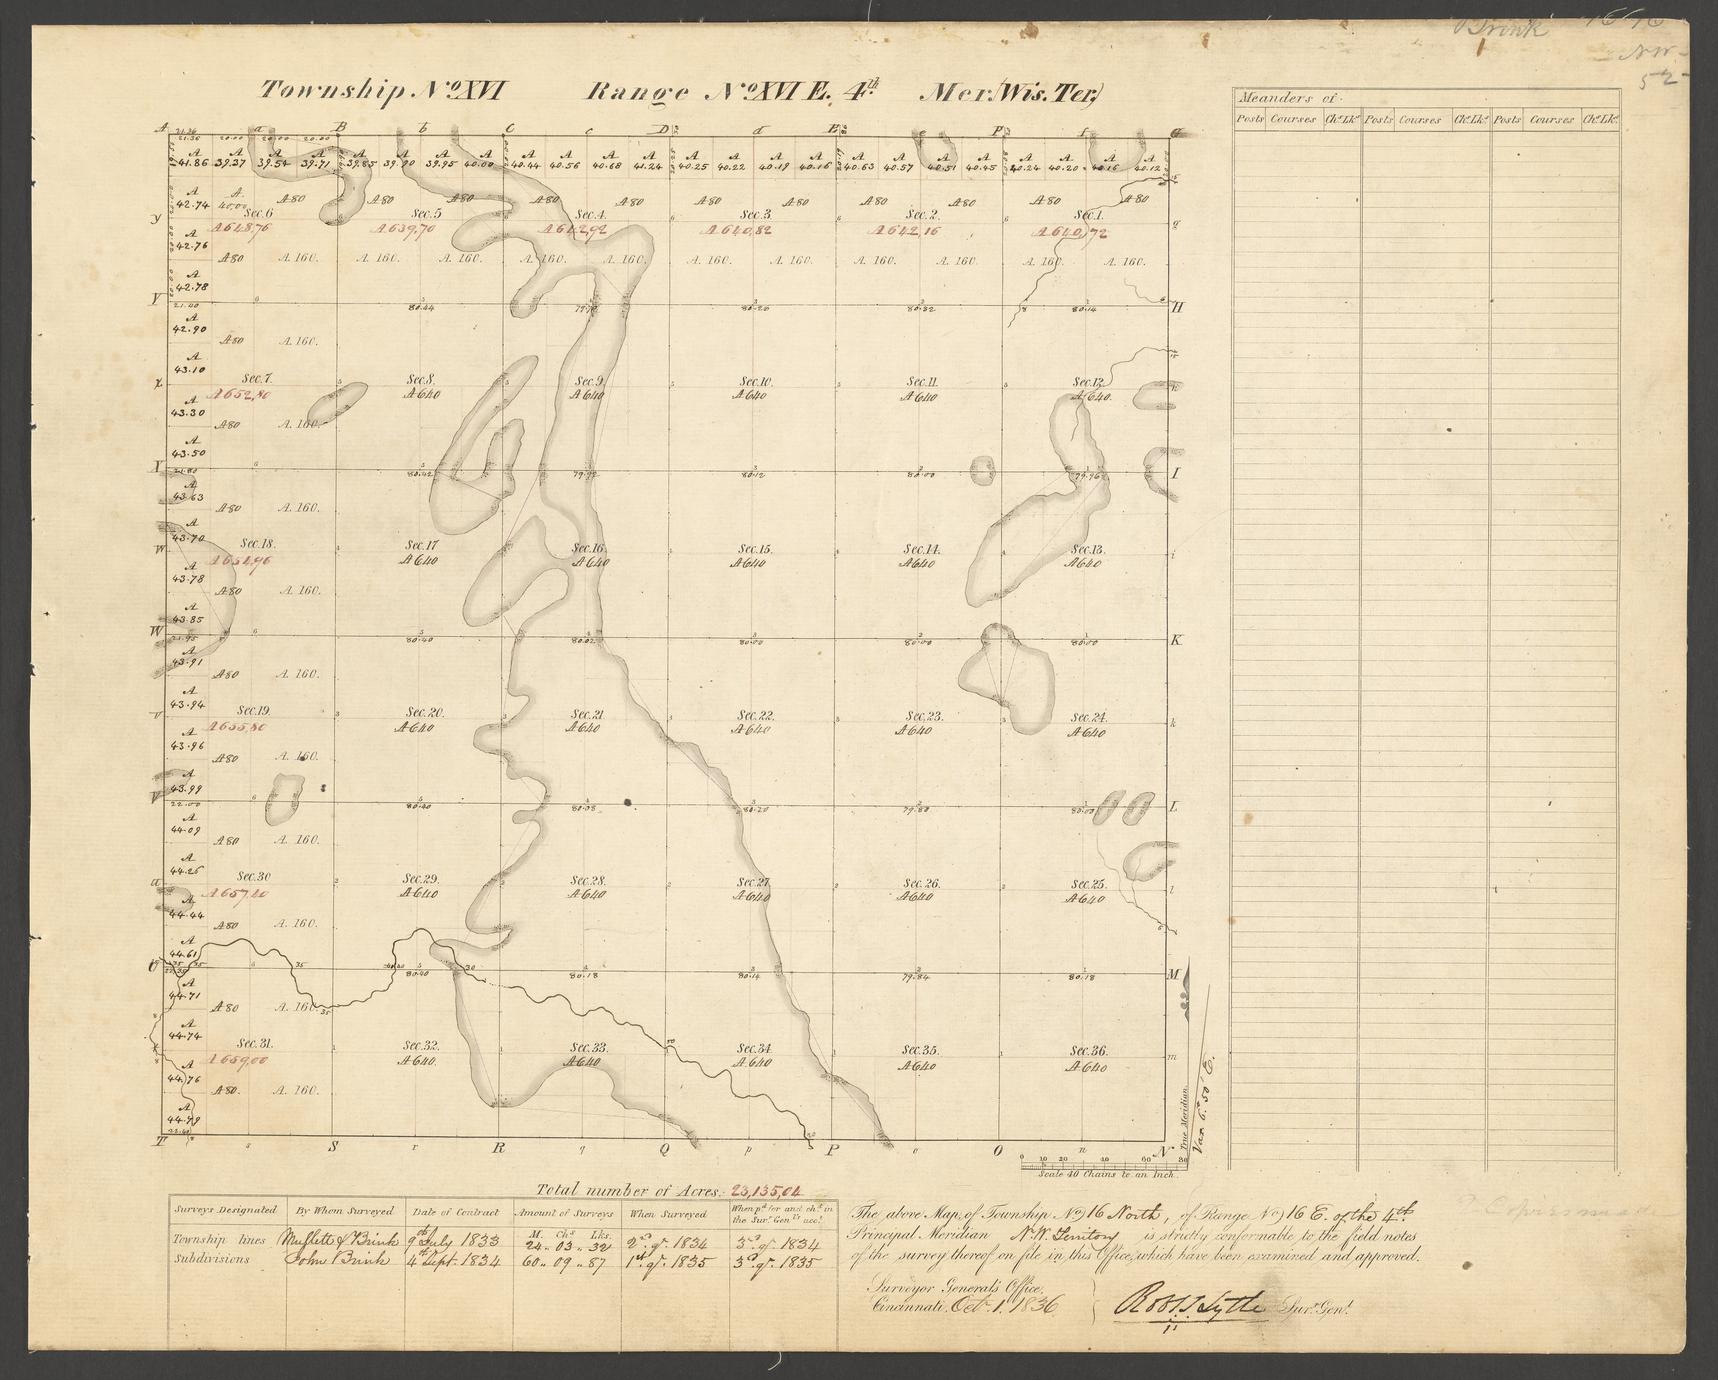 Brink
Township No. XVI Range No. XVI E. 4th. Mer. (Wis. Ter.)
Meanders of
Posts Courses Chs. Lks. Posts Courses Chs. Lks. Posts Courses Chs. Lks.
A a B b C c D d E e F f G
A A A A A A A A A A A A A A A A A A A A A A A A
41.86 39.27 39.54 39.71 39.85 39.90 39.95 40.00 40.44 40.56 40.68 41.24 40.25 40.22 40.19 40.16 40.63 40.57 40.51 40.45 40.24 40.20 40.16 40.12
A 42.74 A 40.00 A 80 A 80 A 80 A 80 A 80 A 80 A 80 A 80 A 80 A 80 A 80
y Sec. 6 Sec. 5 Sec. 4. Sec. 3 Sec. 2. Sec. 1. g
A 648,76 A 639,70 A 642,92 A 640,82 A 642,16 A 640,72
A 42.76
A 80 A. 160. A. 160. A. 160. A. 160. A. 160. A. 160. A. 160. A. 160. A. 160. A. 160. A. 160.
A 42.78
Y 21.40 80.44 79.78 80.26 80.32 80.14 H
A 42.90
A 80 A. 160.
A 43.10
x Sec. 7. Sec. 8. Sec. 9. Sec. 10. Sec. 11. Sec. 12. h
A 652,80 A 640 A 640 A 640 A 640 A 640.
A 43.30
A 80 A. 160.
A 43.50
X 21.80 80.42 79.92 80.12 80.00 79.96 I
A 43.63
A 80 A. 160.
A 43.70
w Sec. 18. Sec. 17 Sec. 16. Sec. 15. Sec. 14. Sec. 13. i
A 654,96 A 640 A 640 A 640 A 640 A 640
A 43.78
A 80 A. 160.
A 43.85
W 21.95 80.40 80.02 80.00 80.00 80.00 K
A 43.91
A 80 A. 160.
A 43.94
v Sec. 19. Sec. 20. Sec. 21. Sec. 22. Sec. 23. Sec. 24. k
A 655,80 A 640 A 640 A 640 A 640 A 640
A 43.96
A 80 A. 160.
A 43.99
V 22.00 80.40 80.08 80.20 79.80 80.00 L
A 44.09
A 80 A. 160.
A 44.26
u Sec. 30 Sec. 29. Sec. 28. Sec. 27. Sec. 26. Sec. 25. l
A 657,40 A 640 A 640 A 640 A 640 A 640
A 44.44
A 80 A. 160.
A 44.61
U 80.40 80.18 80.14 79.84 80.18 M
A 44.71
A 80 A. 160.
A 44.74
Sec. 31. Sec. 32. Sec. 33. Sec. 34. Sec. 35. Sec. 36. m
A 659,00 A 640. A 640 A 640 A 640 A 640
A 44.76
A 80. A. 160.
A 44.79
True Meridian.
Var. 6° 50' E.
T s S r R q Q p P o O n N
0 10 20 40 60 80
Scale 40 Chains to an Inch.
Total number of Acres. 23,135,04
Surveys Designated By Whom Surveyed Date of Contract Amount of Surveys When Surveyed When pd. for and chd. in the Surr. Genls. acct.
M. Chs. Lks.
Township lines Mullett & Brink 9th July 1833 24 „ 03 „ 32 2nd qr. 1834 3rd qr. 1834
Subdivisions John Brink 4th Sept. 1834 60 „ 09 „ 87 1st qr. 1835 3rd qr. 1835
The above Map, of Township No. 16 North, of Range No. 16 E. of the 4th.
Principal Meridian N.W. Territory is strictly conformable to the field notes
of the survey thereof on file in this Office, which have been examined and approved.
Surveyor General's Office,
Cincinnati, Oct. 1. 1836
Robt. Lytle Surr. Genl.